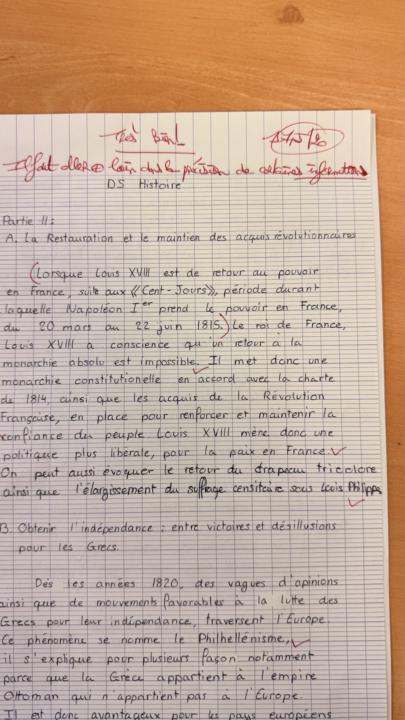 Très Bien!
Il faut aller ⊕ loin dans la précision de certaines informations
DS Histoire
Partie II:
A. La Restauration et le maintien des acquis révolutionnaires
(Lorsque Louis XVIII est de retour au pouvoir
en France, suite aux «Cent-Jours», période durant
laquelle Napoléon Ier prend le pouvoir en France,
du 20 mars au 22 juin 1815.) Le roi de France,
Louis XVIII a conscience qu'un retour à la
monarchie absolu est impossible. Il met donc une
monarchie constitutionelle en accord avec la charte
de 1814, ainsi que les acquis de la Révolution
Française, en place pour renforcer et maintenir la
confiance du peuple. Louis XVIII mène donc une
politique plus libérale, pour la paix en France.
On peut aussi évoquer le retour du drapeau tricolore
ainsi que l'élargissement du suffrage censitaire sous Louis Philippe
B. Obtenir l'indépendance : entre victoires et désillusions
pour les Grecs.
Dès les années 1820, des vagues d'opinions
ainsi que de mouvements favorables à la lutte des
Grecs pour leur indépendance, traversent l'Europe.
Ce phénomène se nomme le Philhellénisme,
il s'explique pour plusieurs façon notamment
parce que la Grèce appartient à l'empire
Ottoman qui n'appartient pas à l'Europe.
Il est donc avantageux pour les pays européens